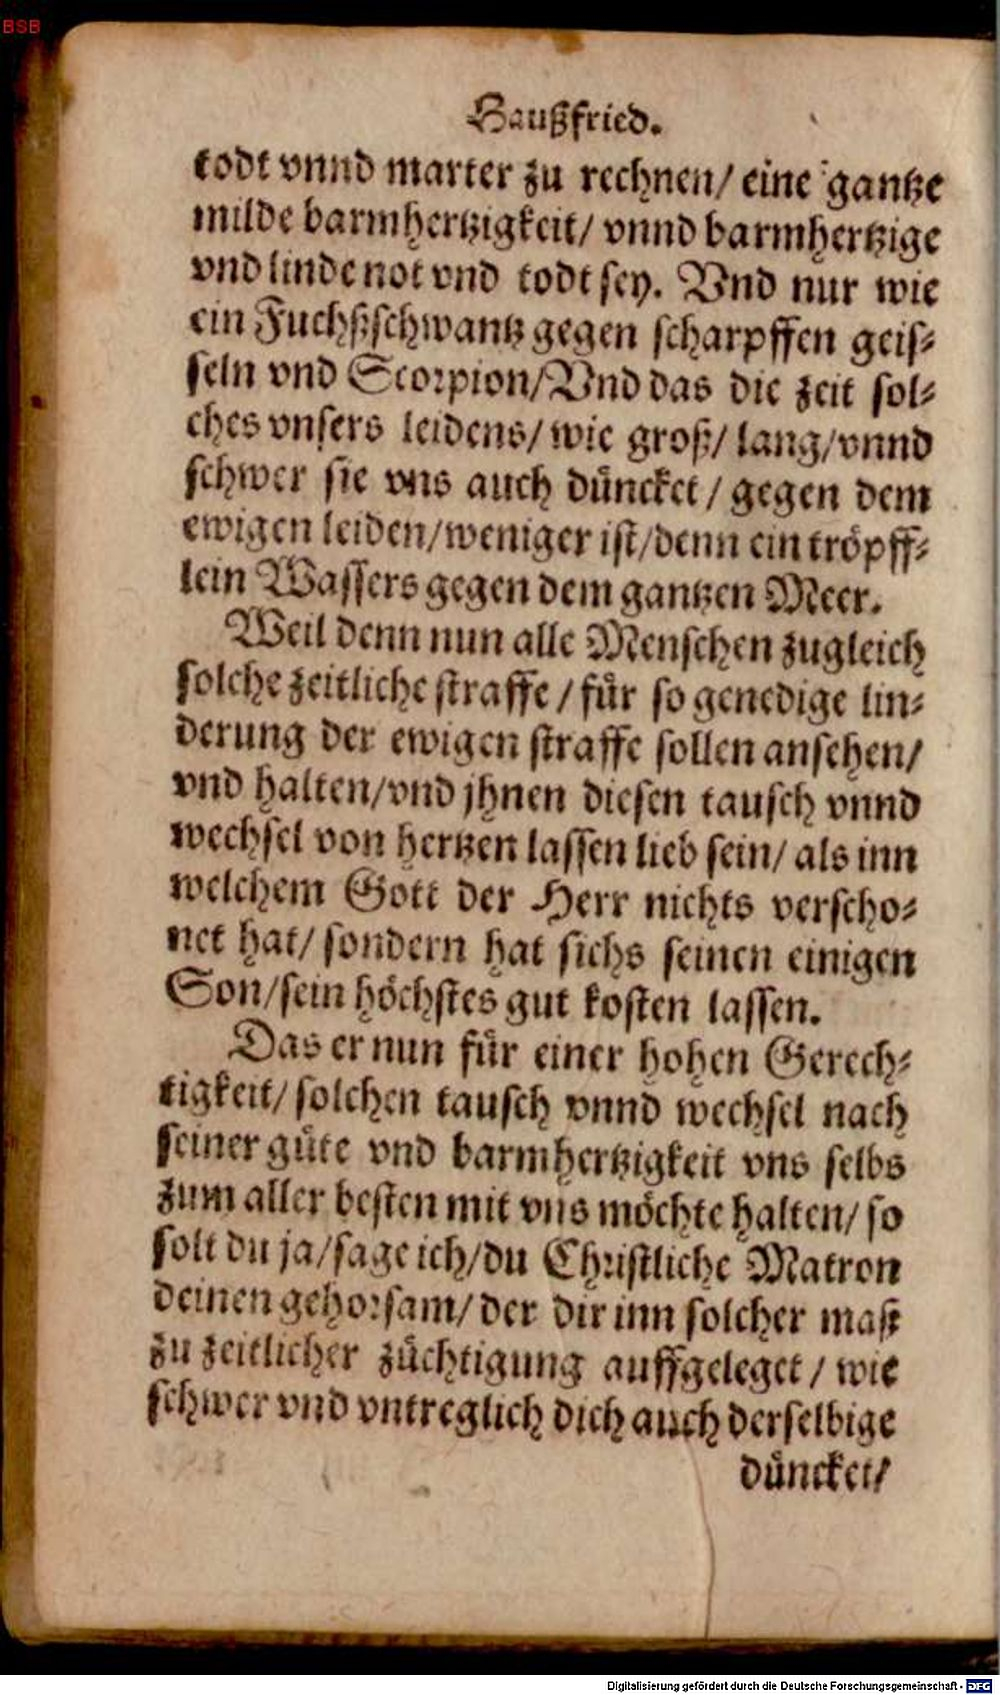 BSB
Haußfried.
todt vnnd marter zu rechnen/ eine gantze
milde barmhertzigkeit/ vnnd barmhertzige
vnd linde not vnd todt sey. Vnd nur wie
ein Fuchßschwantz gegen scharpffen geis⸗
seln vnd Scorpion/Vnd das die zeit sol⸗
ches vnsers leidens/ wie groß/ lang/vnnd
schwer sie vns auch důncket / gegen dem
ewigen leiden/weniger ist/denn ein trőpff⸗
lein Wassers gegen dem gantzen Meer.
Weil denn nun alle Menschen zugleich
solche zeitliche straffe / fůr so genedige lin⸗
derung der ewigen straffe sollen ansehen/
vnd halten/vnd jhnen diesen tausch vnnd
wechsel von hertzen lassen lieb sein/ als inn
welchem Gott der Herr nichts verscho⸗
net hat/ sondern hat sichs seinen einigen
Son/sein hőchstes gut kosten lassen.
Das er nun fůr einer hohen Gerech⸗
tigkeit/ solchen tausch vnnd wechsel nach
seiner gůte vnd barmhertzigkeit vns selbs
zum aller besten mit vns mőchte halten/ so
solt du ja/sage ich/du Christliche Matron
deinen gehorsam/ der dir inn solcher mass
zu zeitlicher zůchtigung auffgeleget / wie
schwer vnd vntreglich dich auch derselbige
důncket/
Digitalisierung gefördert durch die Deutsche Forschungsgemeinschaft - DFG